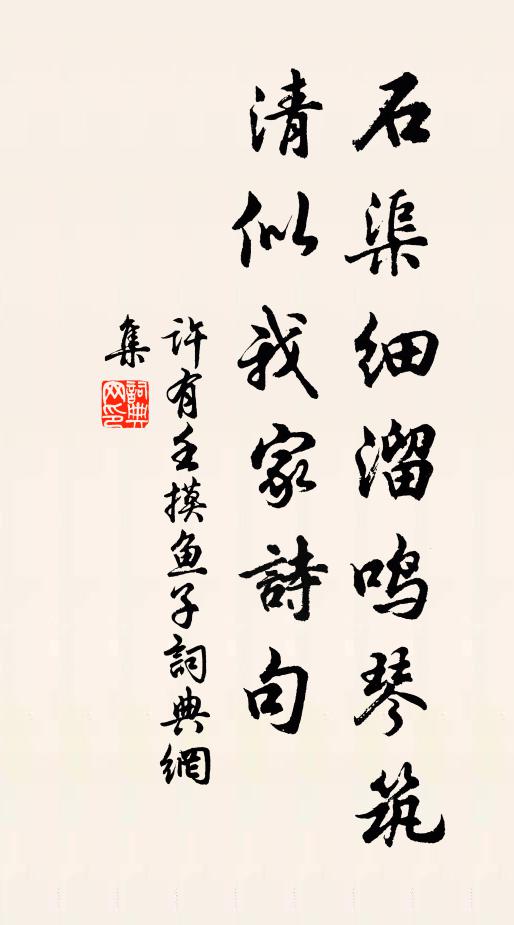 石渠细溜鸣琴筑
清似我家詩句
許有壬摸鱼子詞典網
集
詞典
网印